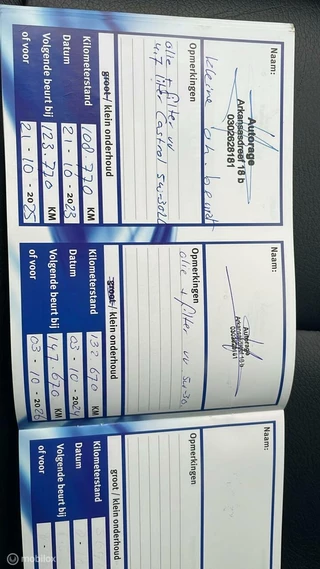 Naam:
Autorage
Arkansasdreef 18 b
0302628181
kleine on. beurt
Opmerkingen
olie + filter vv
4.7 liter Castrol 5w-30LL
groot / klein onderhoud
Kilometerstand 108.770 KM
Datum 21-10-2023
Volgende beurt bij 123.770 KM
of voor 21-10-2025
Naam:
Autorage
Arkansasdreef 18 b
0302628181
Opmerkingen
olie + filter vv 5w-30
groot / klein onderhoud
Kilometerstand 132 670 KM
Datum 03-10-2024
Volgende beurt bij 147.670 KM
of voor 03-10-2026
Naam:
Opmerkingen
groot / klein onderhoud
Kilometerstand
Datum
Volgende beurt bij
of voor
mobilox